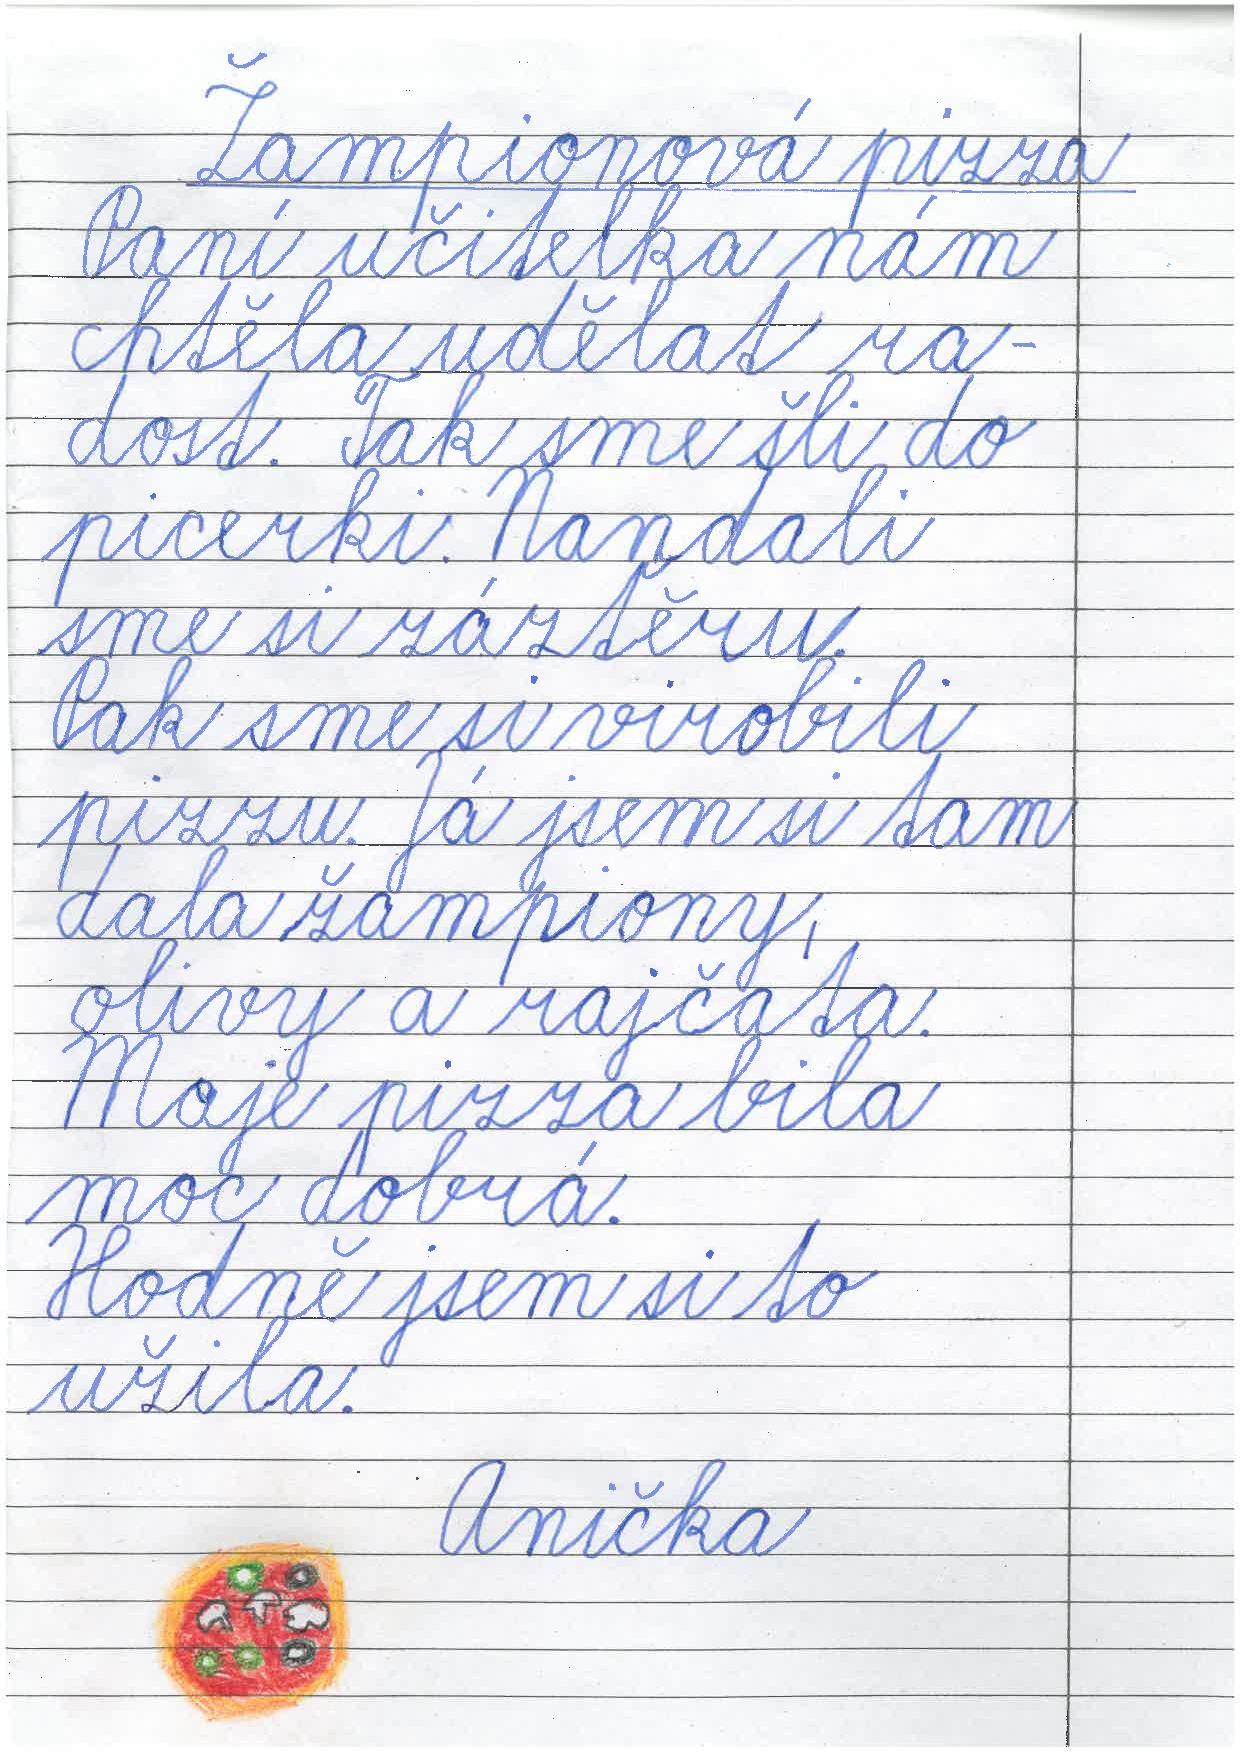 Žampionová pizza
Paní učitelka nám
chtěla udělat ra-
dost. Tak sme šli do
picerki. Nandali
sme si záztěru.
Pak sme si virobili
pizzu. Já jsem si tam
dala žampiony,
olivy a rajčata.
Moje pizza bila
moc dobrá.
Hodně jsem si to
užila.
Anička